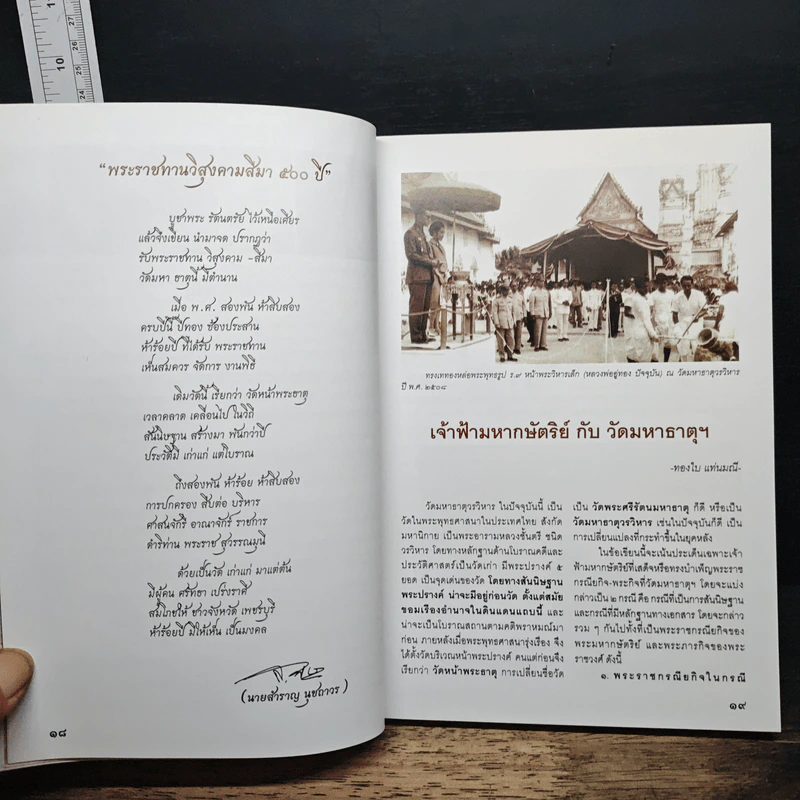 10
27
26
25
24
"พระราชทานวิสุงคามสีมา ๕๐๐ ปี"
บูชาพระ รัตนตรัย ไว้เหนือเศียร
แล้วจึงเขียน นำมาจด ปรากฏว่า
รับพระราชทาน วิสุงคาม -สีมา
วัดมหา ธาตุนี้ มีตำนาน
เมื่อ พ.ศ. สองพัน ห้าสิบสอง
ครบปีนี้ ปีทอง ช้องประสาน
ห้าร้อยปี ที่ได้รับ พระราชทาน
เห็นสมควร จัดการ งานพิธี
เดิมวัดนี้ เรียกว่า วัดหน้าพระธาตุ
เวลาคลาด เคลื่อนไป ในวิถี
สันนิษฐาน สร้างมา พันกว่าปี
ประวัติมี เก่าแก่ แต่โบราณ
ถึงสองพัน ห้าร้อย ห้าสิบสอง
การปกครอง สืบต่อ บริหาร
ศาสนจักร์ อาณาจักร์ ราชการ
ดำริท่าน พระราช สุวรรณมุนี
ด้วยเป็นวัด เก่าแก่ มาแต่ต้น
มีผู้คน ศรัทธา เปร่งราศี
สมโภชให้ ชาวจังหวัด เพชรบุรี
ห้าร้อยปี มีให้เห็น เป็นมงคล
(นายสำราญ นุชถาวร)
๑๘
ทรงเททองหล่อพระพุทธรูป ร.๙ หน้าพระวิหารเล็ก (หลวงพ่ออู่ทอง ปัจจุบัน) ณ วัดมหาธาตุวรวิหาร
ปี พ.ศ. ๒๕๐๘
เจ้าฟ้ามหากษัตริย์ กับ วัดมหาธาตุฯ
-ทองใบ แท่นมณี-
วัดมหาธาตุวรวิหาร ในปัจจุบันนี้ เป็น
วัดในพระพุทธศาสนาในประเทศไทย สังกัด
มหานิกาย เป็นพระอารามหลวงชั้นตรี ชนิด
วรวิหาร โดยทางหลักฐานด้านโบราณคดีและ
ประวัติศาสตร์เป็นวัดเก่า มีพระปรางค์ ๕
ยอด เป็นจุดเด่นของวัด โดยทางสันนิษฐาน
พระปรางค์ น่าจะมีอยู่ก่อนวัด ตั้งแต่สมัย
ขอมเรืองอำนาจในดินแดนแถบนี้ และ
น่าจะเป็นโบราณสถานตามคติพราหมณ์มา
ก่อน ภายหลังเมื่อพระพุทธศาสนารุ่งเรือง จึง
ได้ตั้งวัดบริเวณหน้าพระปรางค์ คนแต่ก่อนจึง
เรียกว่า วัดหน้าพระธาตุ การเปลี่ยนชื่อวัด
เป็น วัดพระศรีรัตนมหาธาตุ ก็ดี หรือเป็น
วัดมหาธาตุวรวิหาร เช่นในปัจจุบันก็ดี เป็น
การเปลี่ยนแปลงที่กระทำขึ้นในยุคหลัง
ในข้อเขียนนี้จะเน้นประเด็นเฉพาะเจ้า
ฟ้ามหากษัตริย์ที่เสด็จหรือทรงบำเพ็ญพระราช
กรณียกิจ-พระกิจที่วัดมหาธาตุฯ โดยจะแบ่ง
กล่าวเป็น ๒ กรณี คือ กรณีที่เป็นการสันนิษฐาน
และกรณีที่มีหลักฐานทางเอกสาร โดยจะกล่าว
รวม ๆ กันไปทั้งที่เป็นพระราชกรณียกิจของ
พระมหากษัตริย์ และพระภารกิจของพระ
ราชวงศ์ ดังนี้
๑. พระราชกรณียกิจในกรณี
๑๙